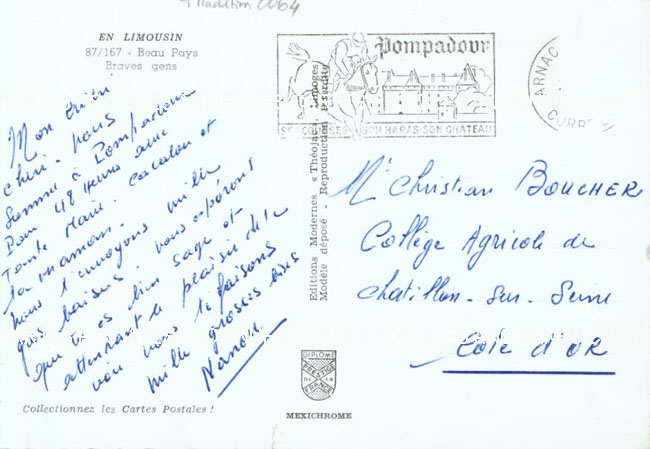 Tradition 0064
EN LIMOUSIN
87/167 - Beau Pays
Braves gens
Mon
chéri. nous
sommes à Pompadour
Pour 48 Heures avec
Tante Marie. et
ta maman.
nous t'envoyons mille
gros baisers. nous espérons
que tu es bien sage et
attendant le plaisir de te
voir nous te faisons
mille grosses bises
Nanou
Collectionnez les Cartes Postales !
Editions Modernes « Théojac », Limoges
Modèle déposé - Reproduction interdite
Pompadour
SES COURSES SON HARAS SON CHATEAU
ARNAC
CORREZE
Mr Christian BOUCHER
Collège Agricole de
Chatillon-sur-Seine
Côte d'OR
DIPLOME
PRESTIGE
DE LA
FRANCE
MEXICHROME